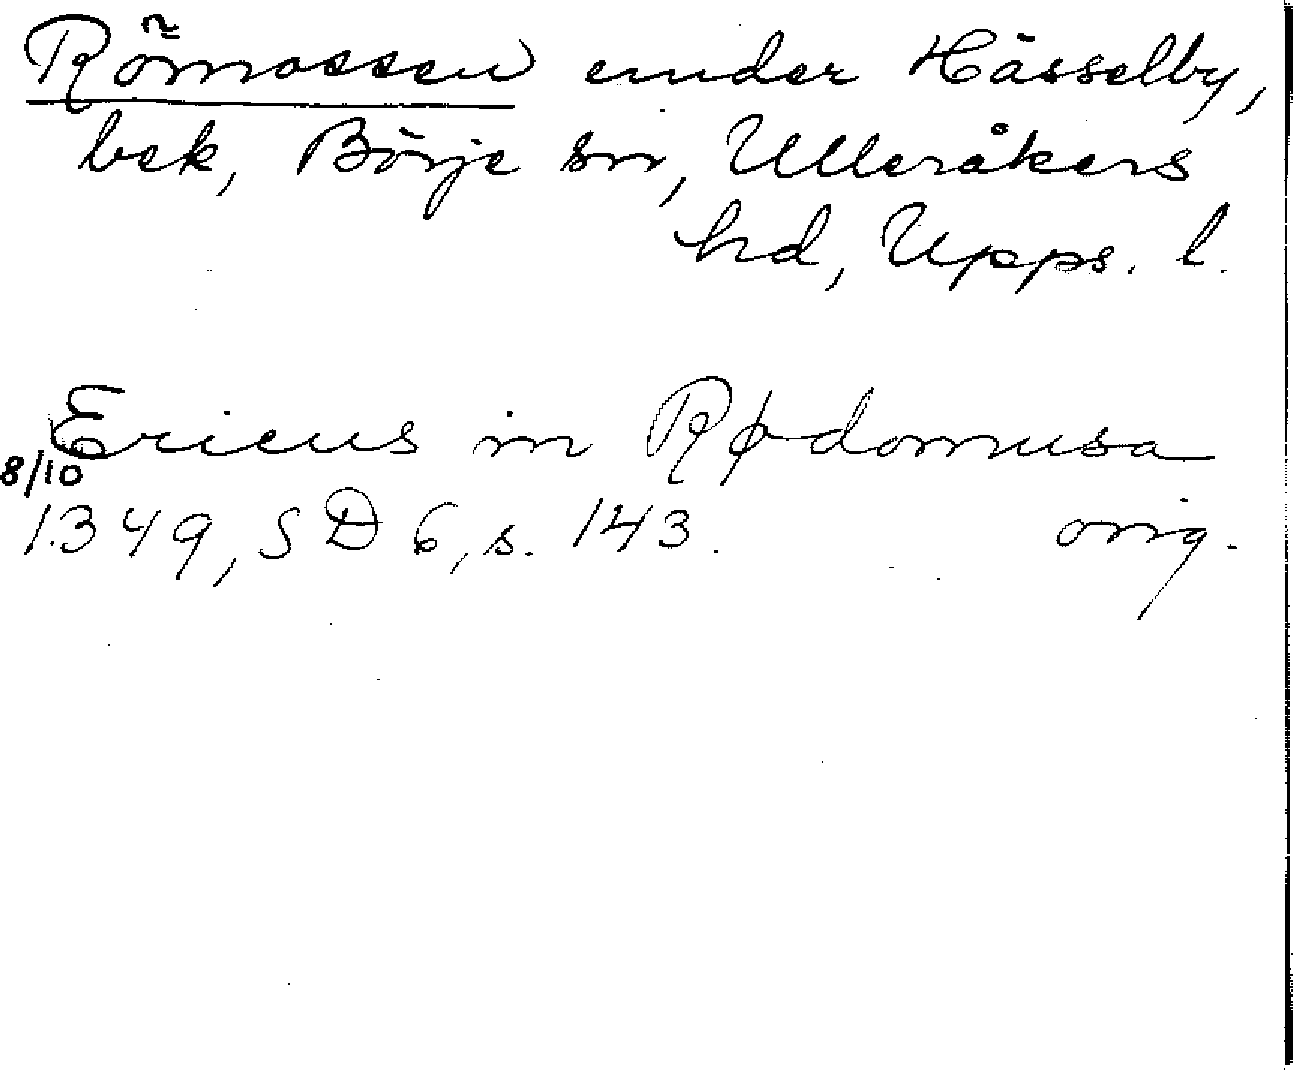 Römossen under Hässelby,
bek, Börje sn, Ulleråkers
hd, Upps. l.
Ericus in Rødomusa
8/10
1349, SD 6, s. 143. orig.